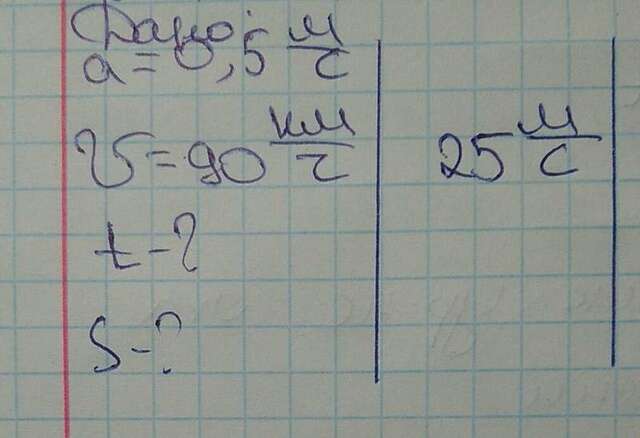 Дано:
a = 0,5 м/с
υ = 90 км/ч 25 м/с
t - ?
S - ?